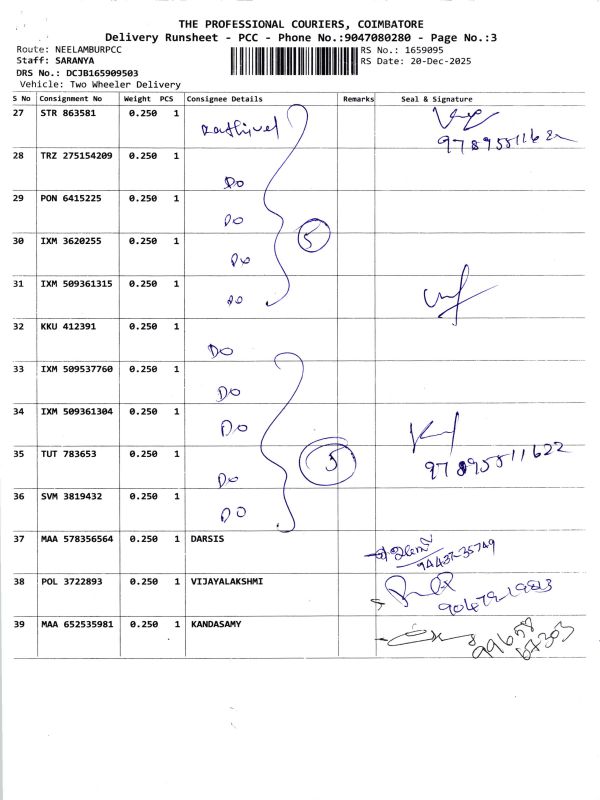 THE PROFESSIONAL COURIERS, COIMBATORE
Delivery Runsheet - PCC - Phone No.:9047080280 - Page No.:3
Route: NEELAMBURPCC
RS No.: 1659095
Staff: SARANYA
RS Date: 20-Dec-2025
DRS No.: DCJB165909503
Vehicle: Two Wheeler Delivery
S No Consignment No Weight PCS Consignee Details Remarks Seal & Signature
27 STR 863581 0.250 1 Kathivel
97895511622
28 TRZ 275154209 0.250 1 DO
29 PON 6415225 0.250 1 DO
5
30 IXM 3620255 0.250 1 DO
31 IXM 509361315 0.250 1 DO
32 KKU 412391 0.250 1 DO
33 IXM 509537760 0.250 1 DO
34 IXM 509361304 0.250 1 DO
35 TUT 783653 0.250 1 DO
5
97895511622
36 SVM 3819432 0.250 1 DO
37 MAA 578356564 0.250 1 DARSIS
94437-35749
38 POL 3722893 0.250 1 VIJAYALAKSHMI
39 MAA 652535981 0.250 1 KANDASAMY
99658
67303